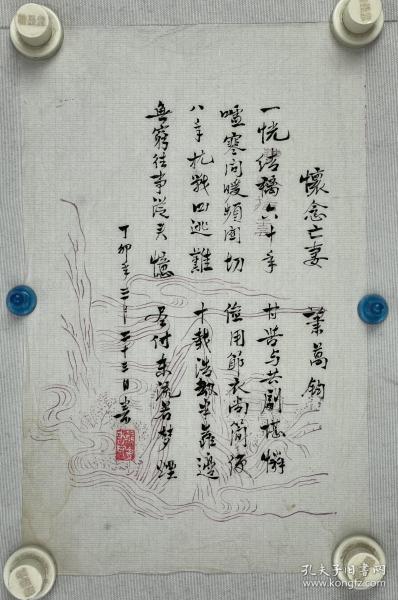 懷念亡妻 葉萬鈞
一恍结缡六十年 甘苦与共剧堪憐
噓寒问暖頻関切 儉用節衣尚簡
八年抗戰四逃難 十載浩劫半邊
無窮往事從头憶 尽付東流若梦煙
丁卯年三月二十三日書
孔夫子旧书网
www.kongfz.com